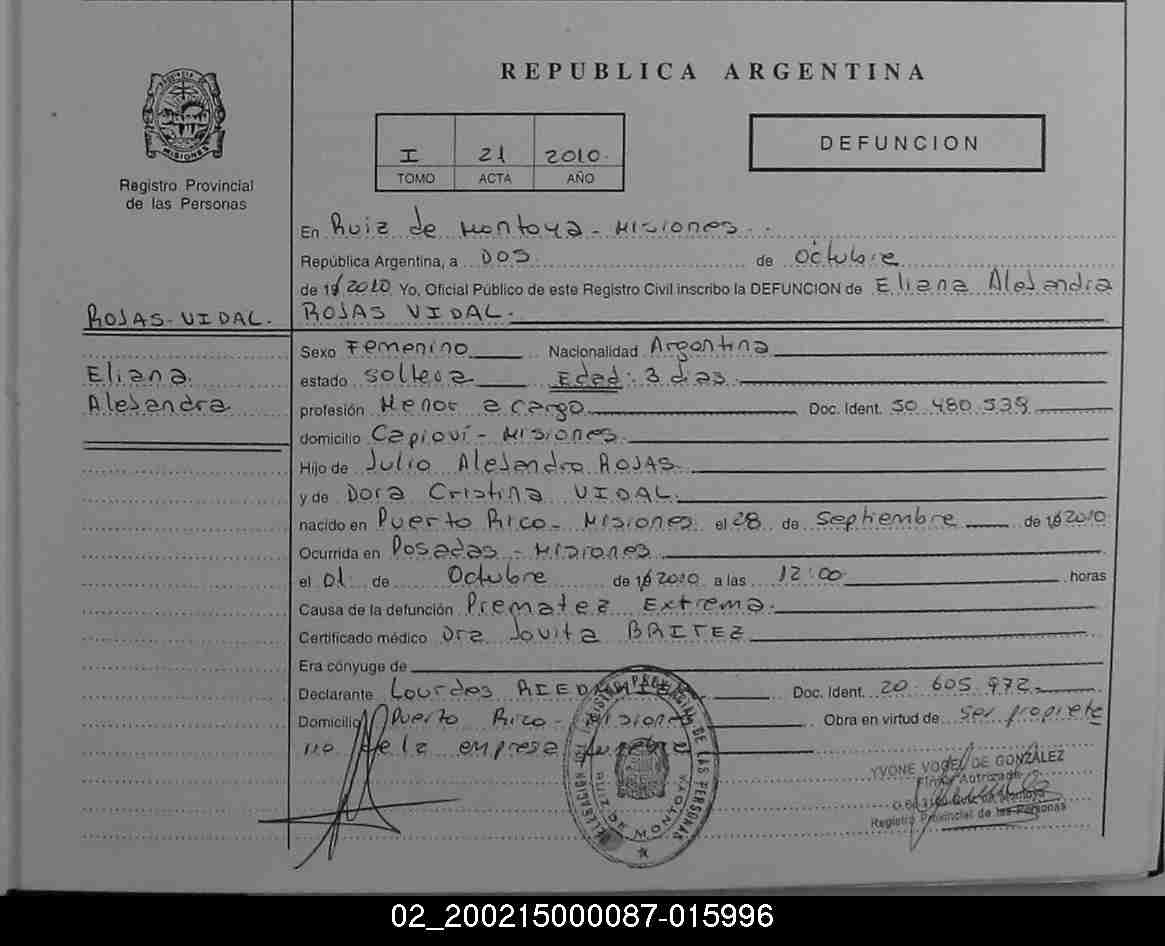 REPUBLICA ARGENTINA
PROVINCIA DE
MISIONES
Registro Provincial
de las Personas
I 21 2010
TOMO ACTA AÑO
DEFUNCION
En Ruiz de Montoya - Misiones
República Argentina, a DOS de Octubre
de 19 2010 Yo, Oficial Público de este Registro Civil inscribo la DEFUNCION de Eliana Alejandra
ROJAS VIDAL.
ROJAS-VIDAL.
Eliana
Alejandra
Sexo Femenino Nacionalidad Argentina
estado soltera Edad: 3 dias
profesión Menor a cargo Doc. Ident. 50.480.539
domicilio Capioví - Misiones.
Hijo de Julio Alejandro ROJAS
y de Dora Cristina VIDAL.
nacido en Puerto Rico - Misiones el 28 de Septiembre de 19 2010
Ocurrida en Posadas - Misiones
el 01 de Octubre de 19 2010 a las 12:00 horas
Causa de la defunción Prematez Extrema.
Certificado médico Dra Jovita BRITEZ
Era cónyuge de
Declarante Lourdes Doc. Ident. 20.605.972
Domicilio Puerto Rico - Misiones Obra en virtud de Ser propieta
rio de la empresa funebre
DELEGACION DEL REGISTRO PROVINCIAL DE LAS PERSONAS
RUIZ DE MONTOYA
YVONE VOGEL DE GONZÁLEZ
Firma Autorizada
Ruiz de Montoya
Registro Provincial de las Personas
02_200215000087-015996